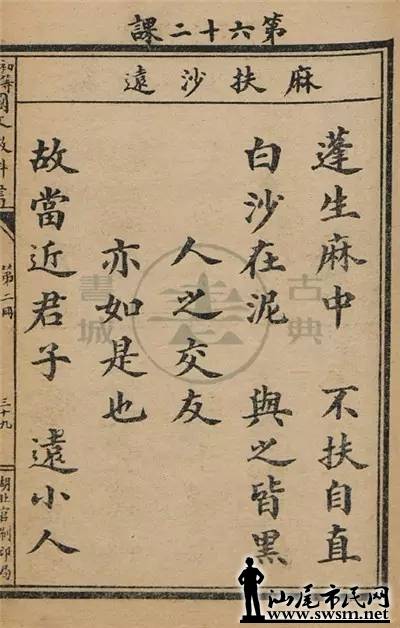 第六十二課
麻扶沙遠
蓬生麻中 不扶自直
白沙在泥 與之皆黑
人之交友
亦如是也
故當近君子 遠小人
初等國文教科書
第二冊
三十九
湖北官刷印局
古典
書城
汕尾市民网
www.swsm.net